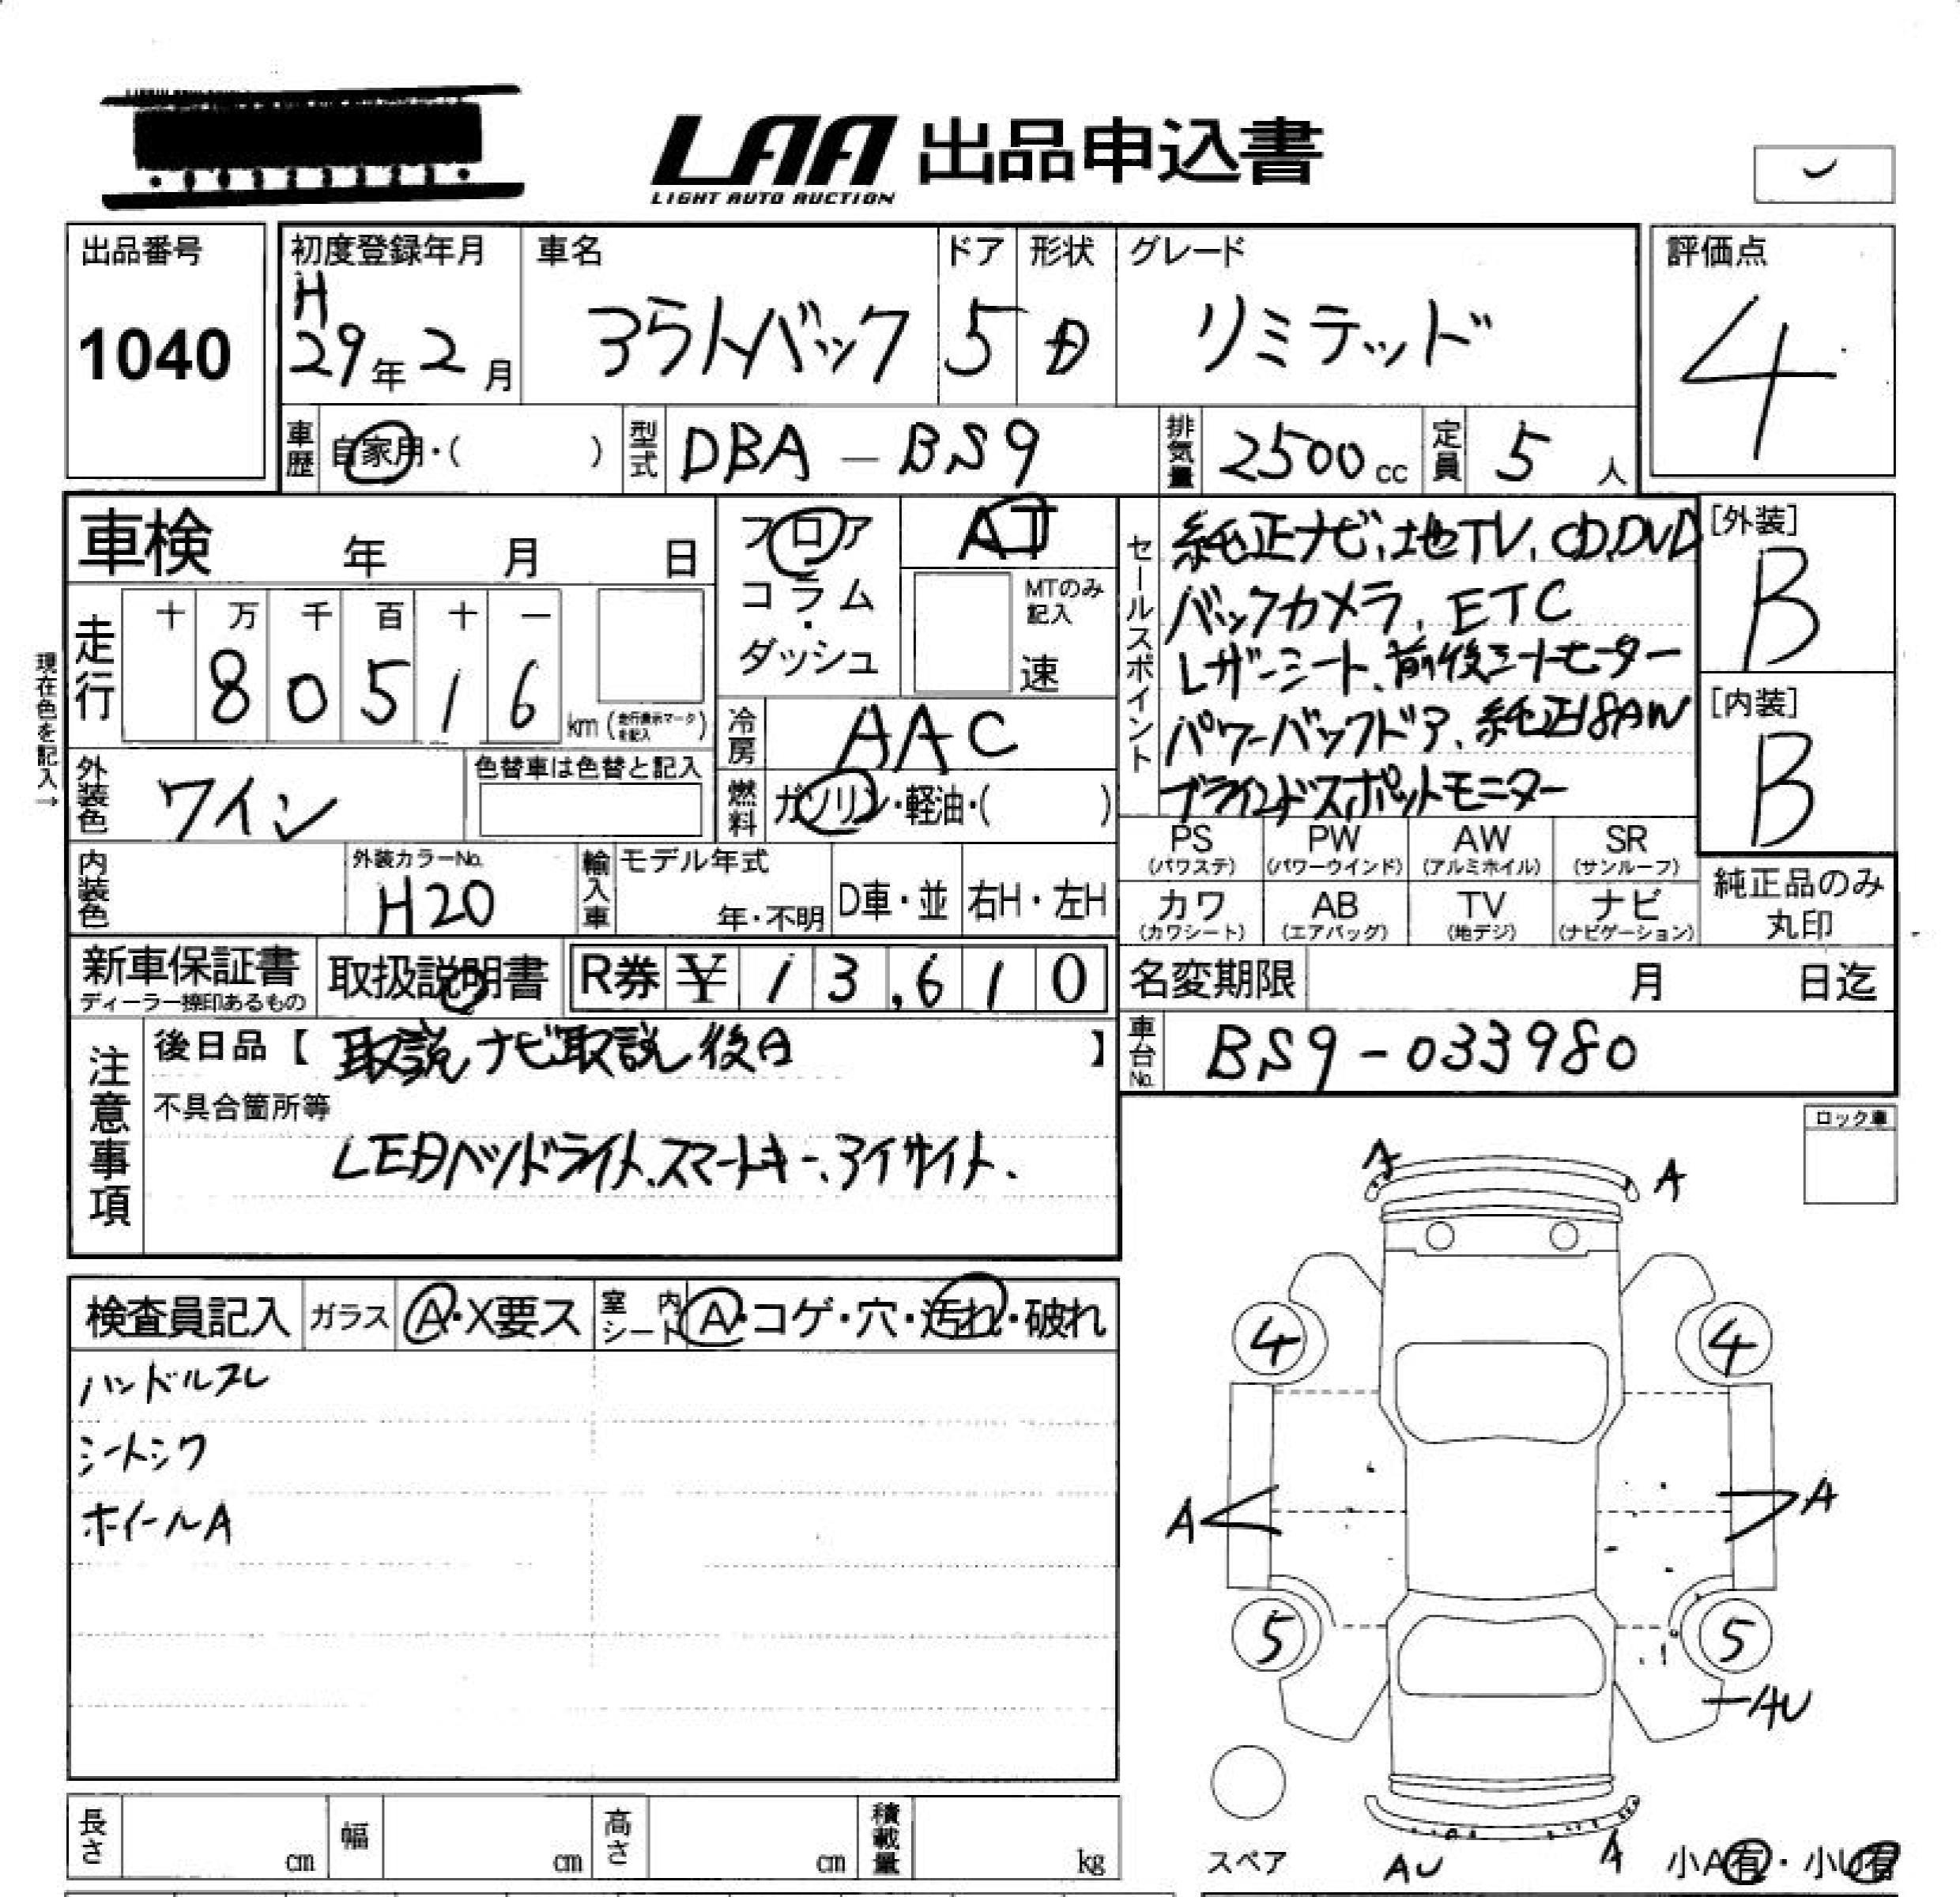 LAA 出品申込書
LIGHT AUTO AUCTION
出品番号
1040
初度登録年月
H
29年2月
車名
アウトバック
ドア
5
形状
D
グレード
リミテッド
評価点
4
車歴
自家用・( )
型式
DBA-BS9
排気量
2500cc
定員
5人
車検 年 月 日
フロア
コラム・
ダッシュ
AT
MTのみ記入
速
セールスポイント
純正ナビ、地TV、CD、DVD
バックカメラ、ETC
レザーシート、前後シートヒーター
パワーバックドア、純正18AW
ブラインドスポットモニター
[外装]
B
[内装]
B
現在色を記入→
走行
十 万 千 百 十 一
8 0 5 1 6
km (走行表示マークを記入)
冷房
AAC
外装色
ワイン
色替車は色替と記入
燃料
ガソリン・軽油・( )
PS (パワステ)
PW (パワーウインド)
AW (アルミホイル)
SR (サンルーフ)
カワ (カワシート)
AB (エアバッグ)
TV (地デジ)
ナビ (ナビゲーション)
純正品のみ
丸印
内装色
外装カラーNo.
H20
輸入車
モデル年式
年・不明
D車・並
右H・左H
新車保証書
ディーラー捺印あるもの
取扱説明書
R券 ¥13,610
名変期限 月 日迄
車台No.
BS9-033980
注意事項
後日品【 取説 ナビ取説 後日 】
不具合箇所等
LEDヘッドライト、スマートキー、アイサイト、
ロック車
検査員記入
ガラス
A・X要ス
室内シート
A・コゲ・穴・汚れ・破れ
ハンドルスレ
シートシワ
ホイールA
A A
4 4
A A
5 5
AU
スペア
AU A
小A有・小U有
長さ cm
幅 cm
高さ cm
積載量 kg